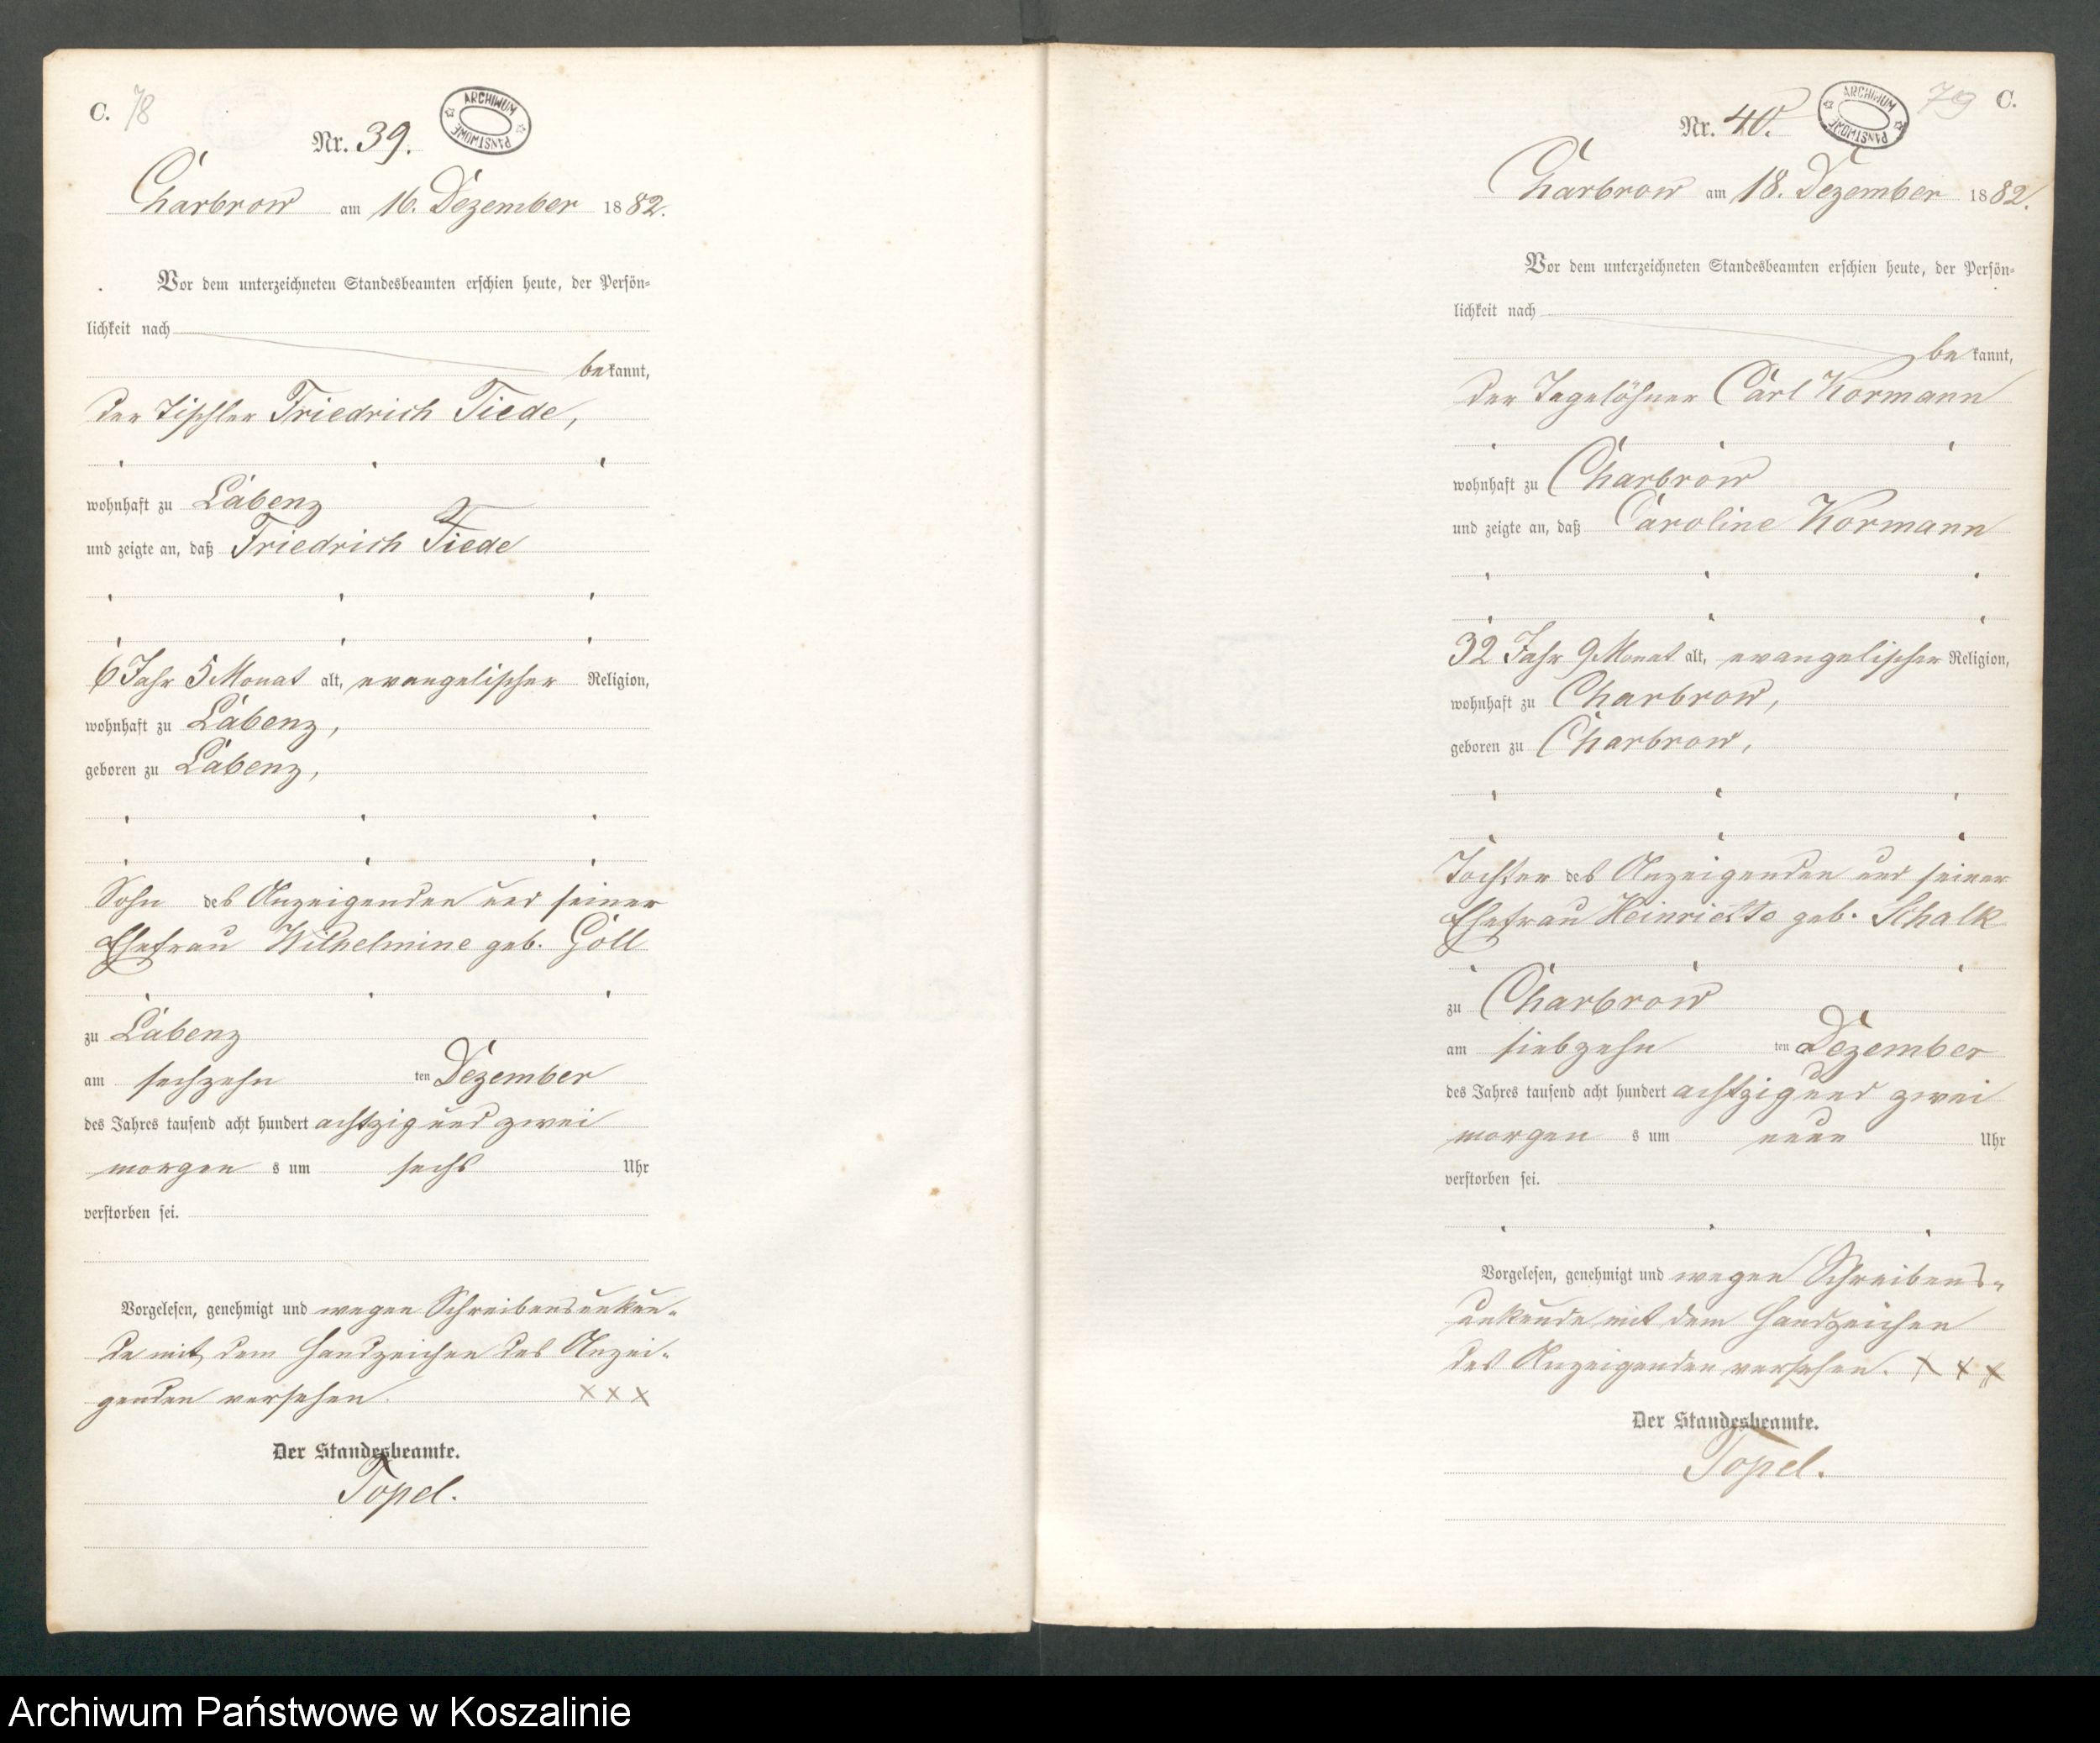 C. 78
ARCHIWUM PAŃSTWOWE
Nr. 39.
Charbrow am 16. Dezember 1882.
Vor dem unterzeichneten Standesbeamten erschien heute, der Persön-
lichkeit nach
bekannt,
der Tischler Friedrich Tiede,
wohnhaft zu Labenz
und zeigte an, daß Friedrich Tiede
6 Jahr 5 Monat alt, evangelischer Religion,
wohnhaft zu Labenz,
geboren zu Labenz,
Sohn des Anzeigenden und seiner
Ehefrau Wilhelmine geb. Göll
zu Labenz
am sechzehn ten Dezember
des Jahres tausend acht hundert achtzig und zwei
morgens um sechs Uhr
verstorben sei.
Vorgelesen, genehmigt und wegen Schreibensunkun-
de mit dem Handzeichen des Anzei-
genden versehen. XXX
Der Standesbeamte.
Topel.
79 C.
ARCHIWUM PAŃSTWOWE
Nr. 40.
Charbrow am 18. Dezember 1882.
Vor dem unterzeichneten Standesbeamten erschien heute, der Persön-
lichkeit nach
bekannt,
der Tagelöhner Carl Kormann
wohnhaft zu Charbrow
und zeigte an, daß Caroline Kormann
32 Jahr 9 Monat alt, evangelischer Religion,
wohnhaft zu Charbrow,
geboren zu Charbrow,
Tochter des Anzeigenden und seiner
Ehefrau Heinriette geb. Schalk
zu Charbrow
am siebzehn ten Dezember
des Jahres tausend acht hundert achtzig und zwei
morgens um neun Uhr
verstorben sei.
Vorgelesen, genehmigt und wegen Schreibens-
unkunde mit dem Handzeichen
des Anzeigenden versehen. XXX
Der Standesbeamte.
Topel.
Archiwum Państwowe w Koszalinie